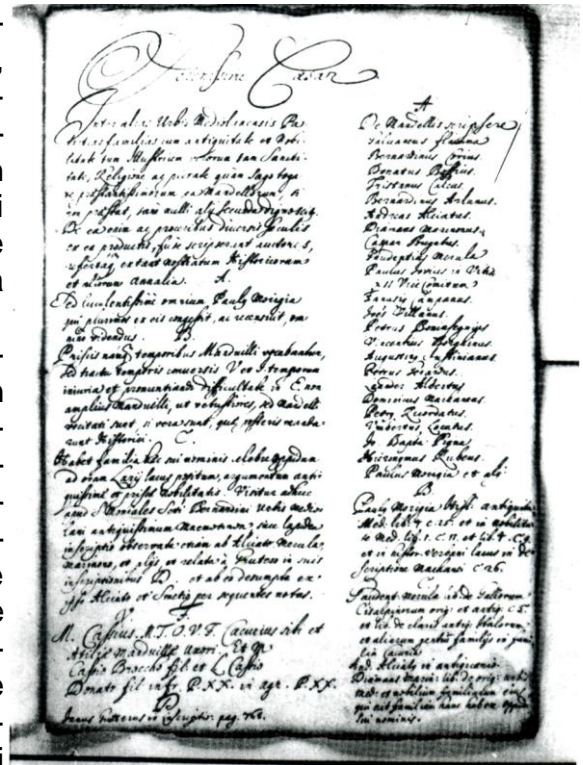 Potentissime Caesar
Inter alias Urbis Mediolanensis Pa
tritias familias cum antiquitate et Nobi
litate tum Illustrium virorum tam Sancti
tate, Religione ac pietate quàm Sago toga
praestantissimorum, ea Mandellorum, si
non praestat, sanè nulli alij secunda dignoscitur
De ea enim ac proceribus diversis saeculis
ex ea productis, fusè scripserunt auctores,
refertaque extant nostratum Historicorum
et aliorum annalia. A.
Sed luculentissimè omnium Pauly Morigia
qui plurimos ex eis congessit, ac recensuit, om
nino videndus. B.
Priscis namque temporibus Manduilli vocabantur,
sed tractu temporis conversis V et I temporum
iniuria et pronuntiandi difficultate in E non
amplius Manduilli, ut vetustiores, sed Mandelli
vocitati sunt
runt Historici. C.
Habet familia haec sui nominis celebre oppidum
ad oram Larij lacus positum, argumentum anti
quissimae et priscae nobilitatis. Visitur adhuc
apud Moniales Scti Bernardini Urbis Medio
lani antiquissimum Marmoreum, sive lapidea
inscriptio observata etiam ab Alciato, Merula,
et alijs, et relata à Grutero in suis
inscriptionibus D. et ab eo desumpta ex
ipso Alciato et Smetio per sequentes notas.
M. Cassius M. T. O. V. F. Cacurius sibi et
Atiliae Manduillae Uxori. Et M
Cassio Broccho fil. et L. Cassio
Donato fil. in fr. P. XX. in agr. P. XX.
D
Janus Gruterus in inscriptio: pag. 768.
A
De Mandellis scripsere
Galvaneus flamma
Bernardinus Corius.
Donatus Bossius.
Tristanus Calcus
Bernardinus Arlunus.
Andreas Alciatus.
Gaspar Bugatus.
Gaudentius Merula
Paulus Jovius in Vitis
xii Vicecomitum
Joes Villanus.
Vincentius
Augustinus Justinianus
Leander Albertus
Dominicus Macaneus.
Umbertus Locatus.
Jo Bapta Pigna
Hieronymus Rubeus.
Paulus Morigia et alij
B
Pauly Morigia Hist. antiquitatum
Med. lib. 4 c. 25. et in nobilitate
Med. lib. 1. c. 11. et lib. 4. c. 9.
et in histor. Verbani lacus in de
scriptione Machanei C 26.
C
Gaudent. Merula lib. de Gallorum
Cisalpinorum orig. et antiq. C 5.
et lib. de claris antiq. Italorum,
et aliarum gentium familijs in fami
lia Cacuria
And. Alciatus in antiquario
lib. de orig. antiq.
Med. et nobilium familiarum eius
qui ait familiam hanc habere oppidum
sui nominis.